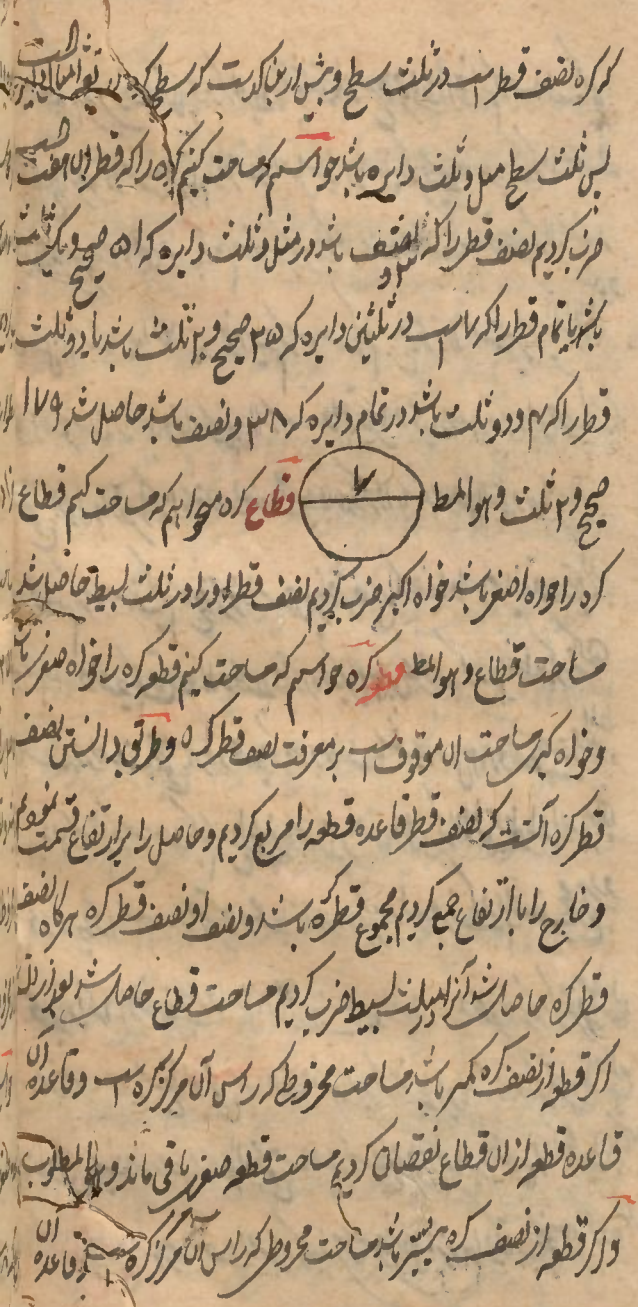 که کره نصف قطر است در ثلث سطح و پیش ازین گذشت که سطح
پس ثلث سطح مثل و ثلث دایره باشد خواستیم که مساحت کنیم کره را که قطر او هفت است
ضرب کردیم نصف قطر را که ۳ و نصف باشد در مثل و ثلث دایره که ۵۱ صحیح و یک ثلث
باشد یا تمام قطر را که ۷ است در ثلثین دایره که ۲۵ صحیح و ۲ ثلث باشد یا دو ثلث
قطر را که ۴ و دو ثلث باشد در تمام دایره که ۳۸ و نصف باشد حاصل شد ۱۷۹
صحیح و ۲ ثلث و هو المط ۷ قطاع کره میخواهم که مساحت کنم قطاع
کره را خواه اصغر باشد خواه اکبر ضرب کردیم نصف قطر او را در ثلث بسیط حاصل شد
مساحت قطاع و هو المط قطعه کره خواستیم که مساحت کنیم قطعه کره را خواه صغری باشد
و خواه کبری مساحت آن موقوف است بر معرفت نصف قطر کره و طریق دانستن نصف
قطر کره آنست که نصف قطر قاعده قطعه را مربع کردیم و حاصل را بر ارتفاع قسمت نمودیم
و خارج را با ارتفاع جمع کردیم مجموع قطر کره باشد و نصف او نصف قطر کره هرگاه نصف
قطر کره حاصل شد آنرا در ثلث بسیط ضرب کردیم مساحت قطاع حاصل شد بعد از آن
اگر قطعه از نصف کره کمتر باشد مساحت مخروطی که راس آن مرکز کره است و قاعده آن
قاعده قطعه از آن قطاع نقصان کردیم مساحت قطعه صغری باقی ماند و هو المطلوب
و اگر قطعه از نصف کره بیشتر باشد مساحت مخروطی که راس آن مرکز کره است و قاعده آن